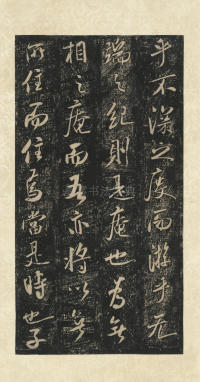 乎不淫之度而游乎无
端之紀則是庵也为無
相之庵而吾亦將以無
所住而住焉當是時也子